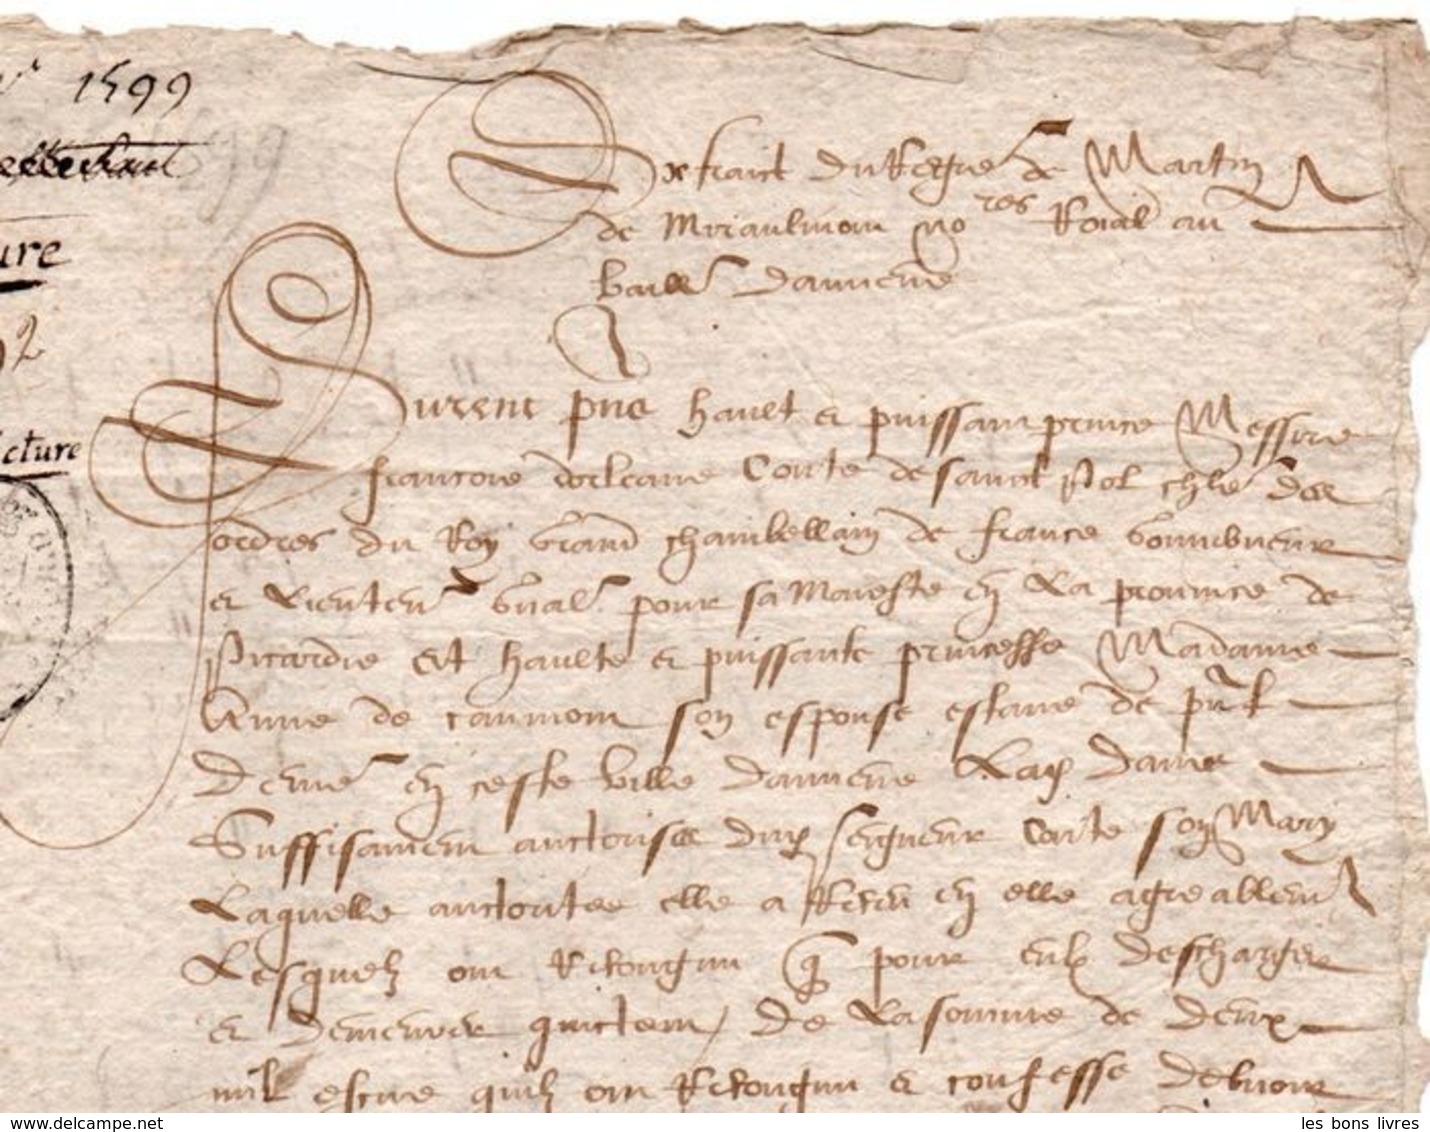 1599
Extraict du Regre de Martin
de Miraulmont no res Roial au
baill damiens
ure
Furent pns hault & puissant prince Messire
cture
francois dorleans Conte de sainct Pol chlr des
ordres du Roy Grand chambellain de france Gouverneur
& Lieuten gnal pour sa Maieste en La province de
Picardie Et haulte & puissante princesse Madame
Anne de caumont son espouse estans de pnt
en ceste ville damiens Lad dame
Suffisament auctorisee dud seigneur Conte son Mary
Laquelle auctorite elle a Receu en elle agreablent
Lesquelz ont Recongnu q pour eulx descharger
& demeurer quictes de La somme de deux
mil escus quilz ont Recongnu & confesse debvoir
ebay.com
les bons livres